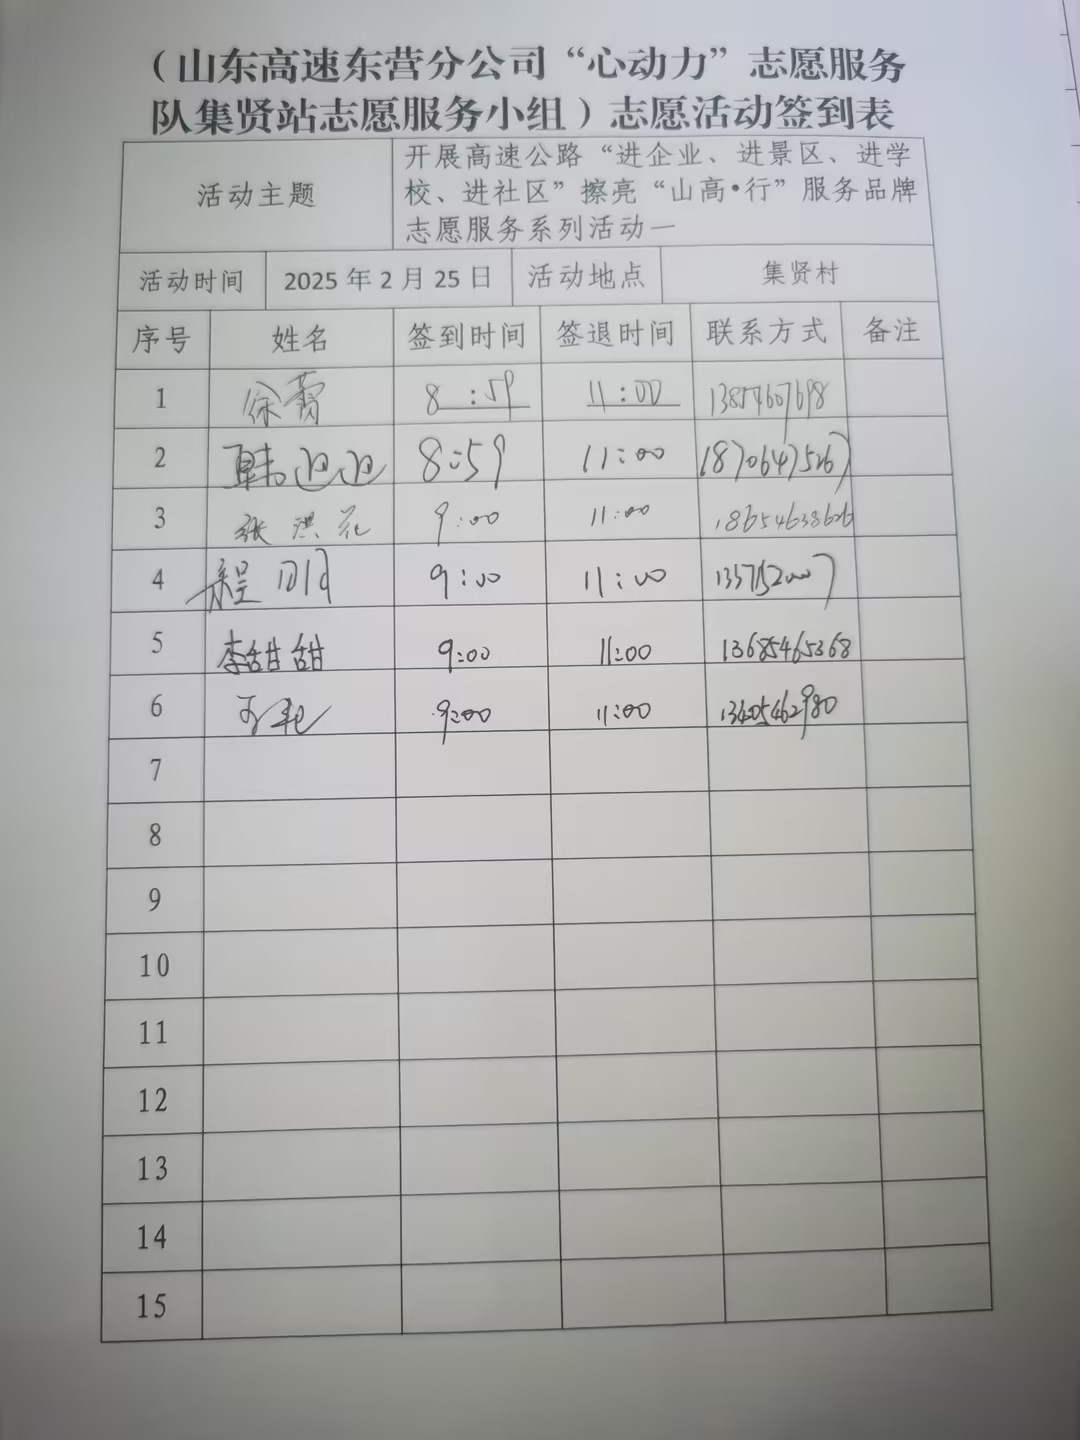 （山东高速东营分公司“心动力”志愿服务
队集贤站志愿服务小组）志愿活动签到表
活动主题
开展高速公路“进企业、进景区、进学
校、进社区”擦亮“山高•行”服务品牌
志愿服务系列活动一
活动时间 2025 年 2 月 25 日 活动地点 集贤村
序号 姓名 签到时间 签退时间 联系方式 备注
1 徐蕾 8:59 11:00 13854607698
2 韩迎迎 8:59 11:00
3 张洪花 9:00 11:00 18654638626
4 程 9:00 11:00
5 李甜甜 9:00 11:00 13685465368
6 9:00 11:00 13405462980
7
8
9
10
11
12
13
14
15